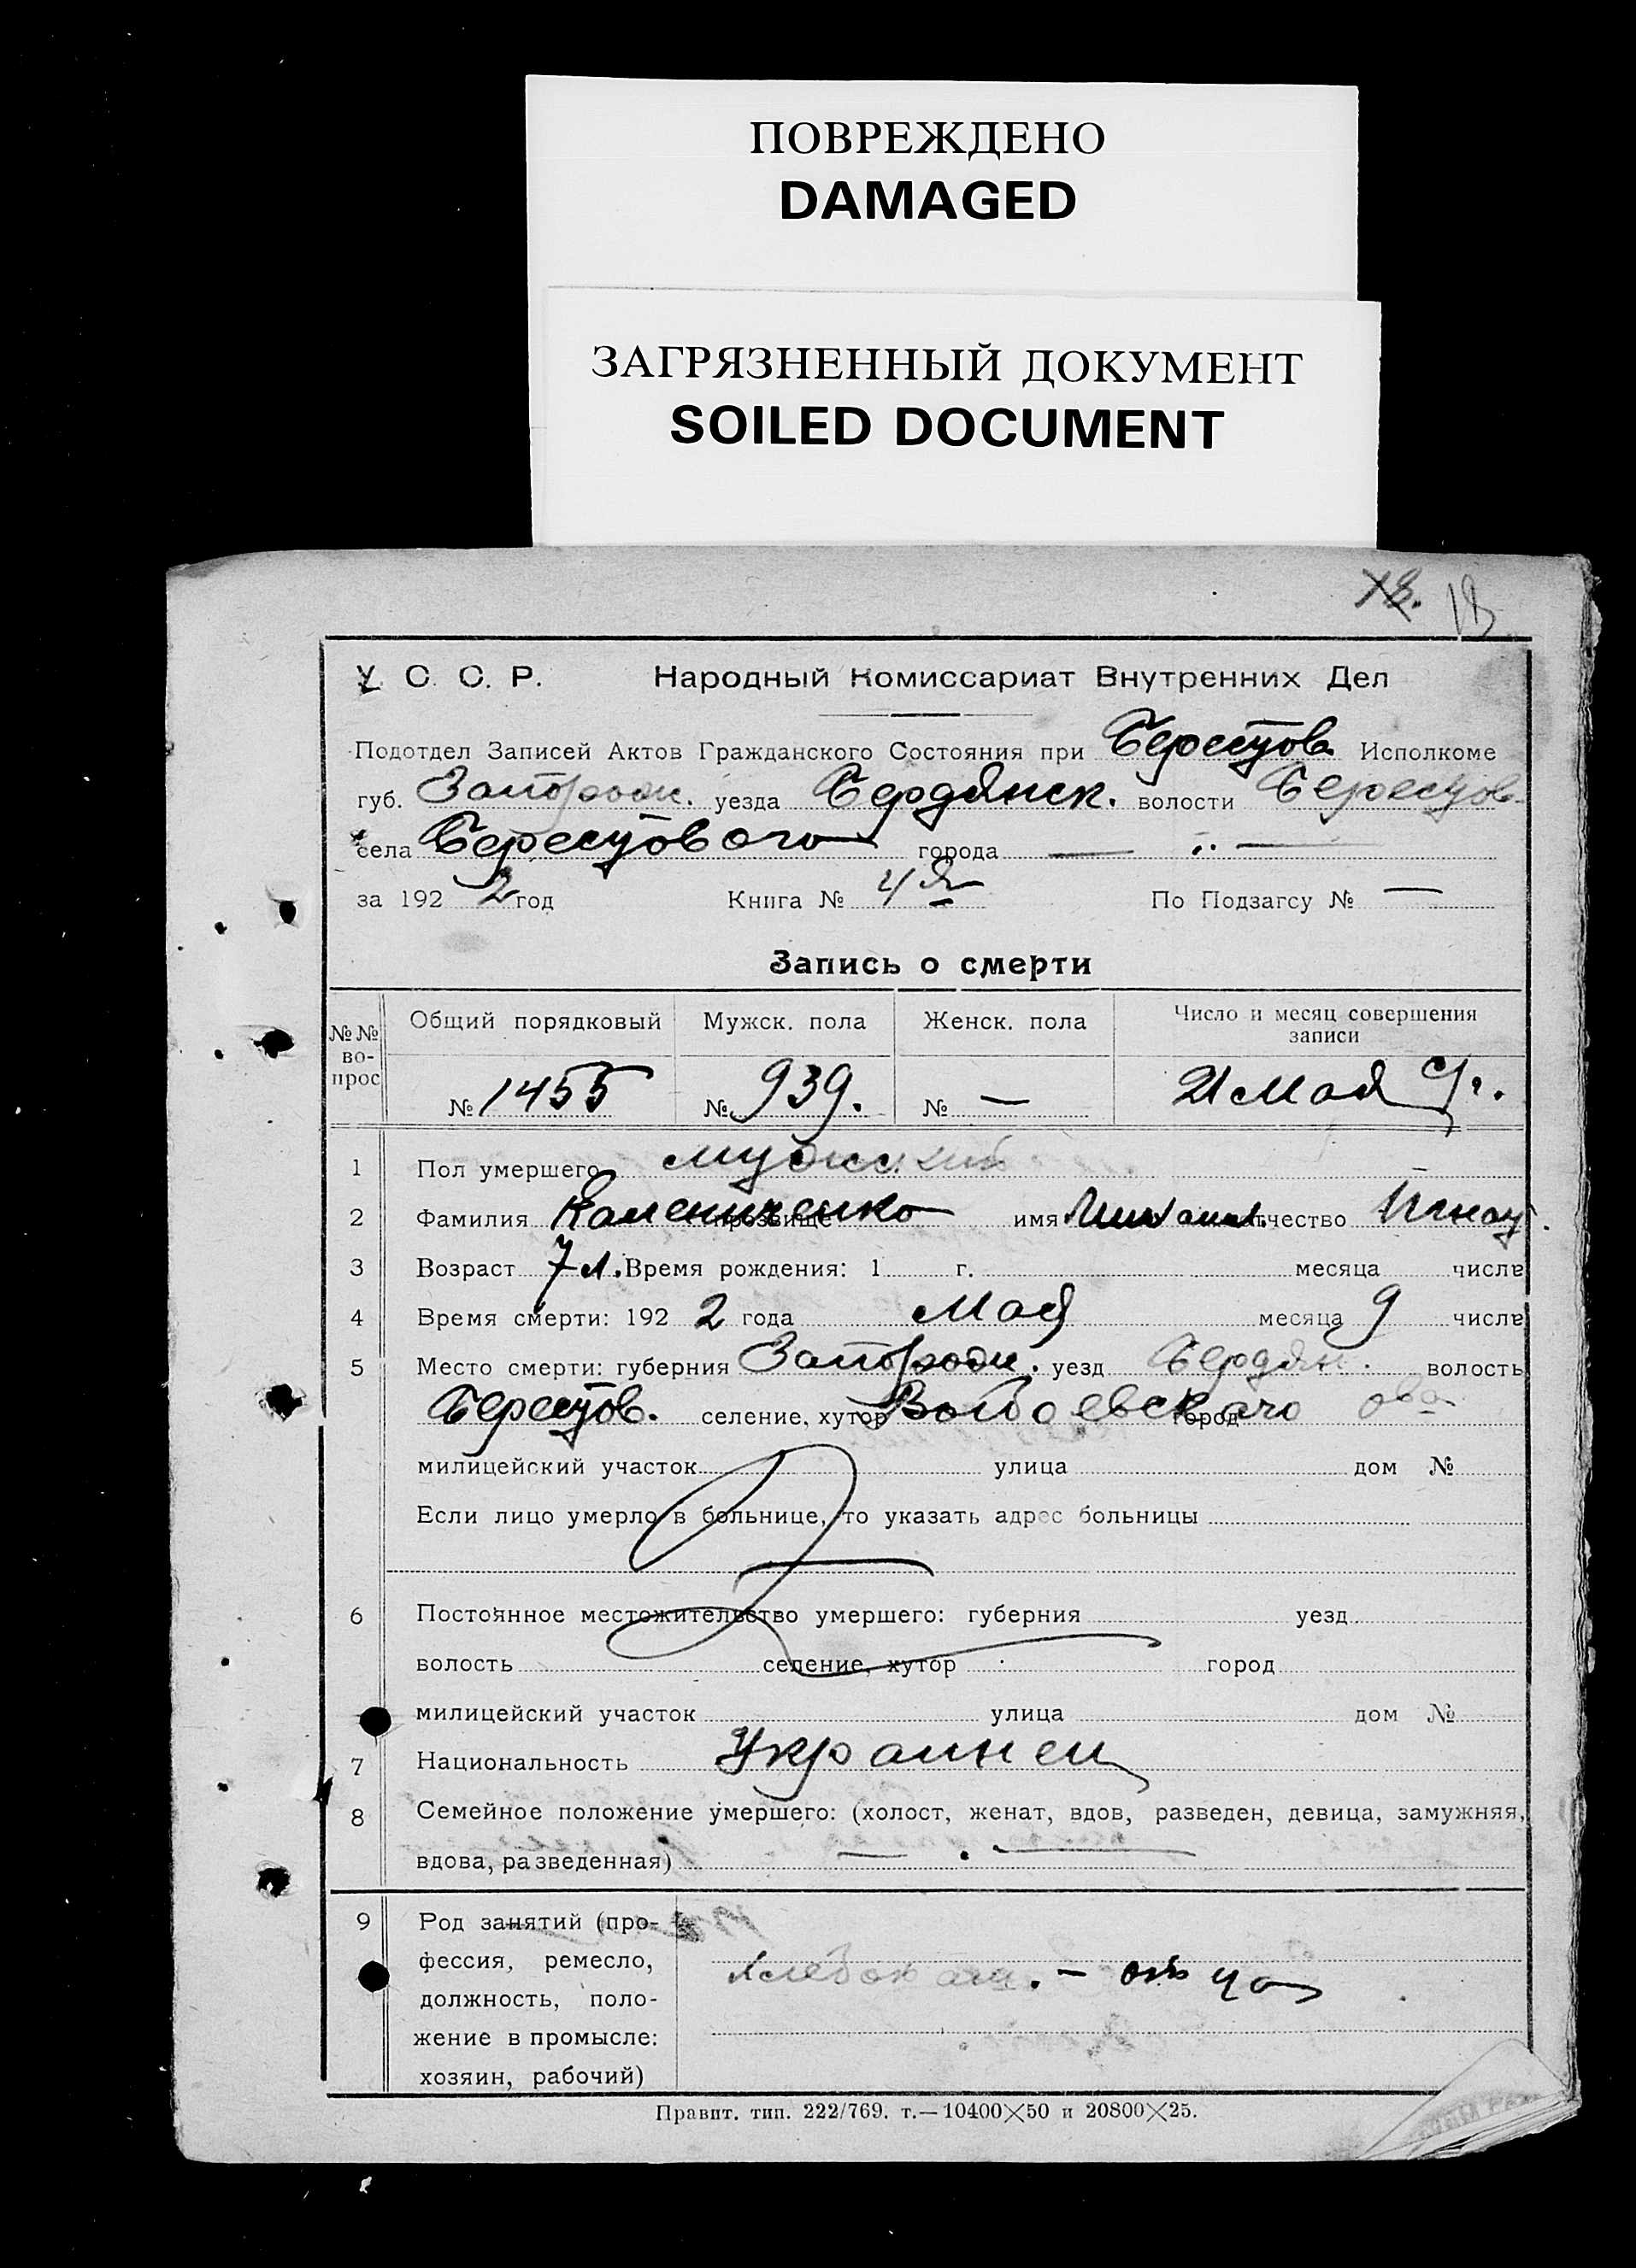 ПОВРЕЖДЕНО
DAMAGED
ЗАГРЯЗНЕННЫЙ ДОКУМЕНТ
SOILED DOCUMENT
18
У. С. С. Р. Народный Комиссариат Внутренних Дел
Подотдел Записей Актов Гражданского Состояния при Берестов. Исполкоме
губ. Запорож. уезда Бердянск. волости Берестов.
села Берестоваго города —
за 1922 год Книга № 4я По Подзагсу № —
Запись о смерти
№№ вопрос Общий порядковый Мужск. пола Женск. пола Число и месяц совершения
записи
№ 1455 № 939. № — 21 Мая с/г.
1 Пол умершего мужской
2 Фамилия Камениченко прозвище имя Михаил. отчество Игнат.
3 Возраст 7 л. Время рождения: 1 г. месяца числа
4 Время смерти: 1922 года Мая месяца 9 числа
5 Место смерти: губерния Запорож. уезд Бердян. волость
Берестов. селение, хутор город
милицейский участок улица дом №
Если лицо умерло в больнице, то указать адрес больницы
6 Постоянное местожительство умершего: губерния уезд
волость селение, хутор город
милицейский участок улица дом №
7 Национальность Украинец
8 Семейное положение умершего: (холост, женат, вдов, разведен, девица, замужняя,
вдова, разведенная) —
9 Род занятий (про-
фессия, ремесло, хлебопаш. — отца
должность, поло-
жение в промысле:
хозяин, рабочий)
Правит. тип. 222/769. т.—10400×50 и 20800×25.